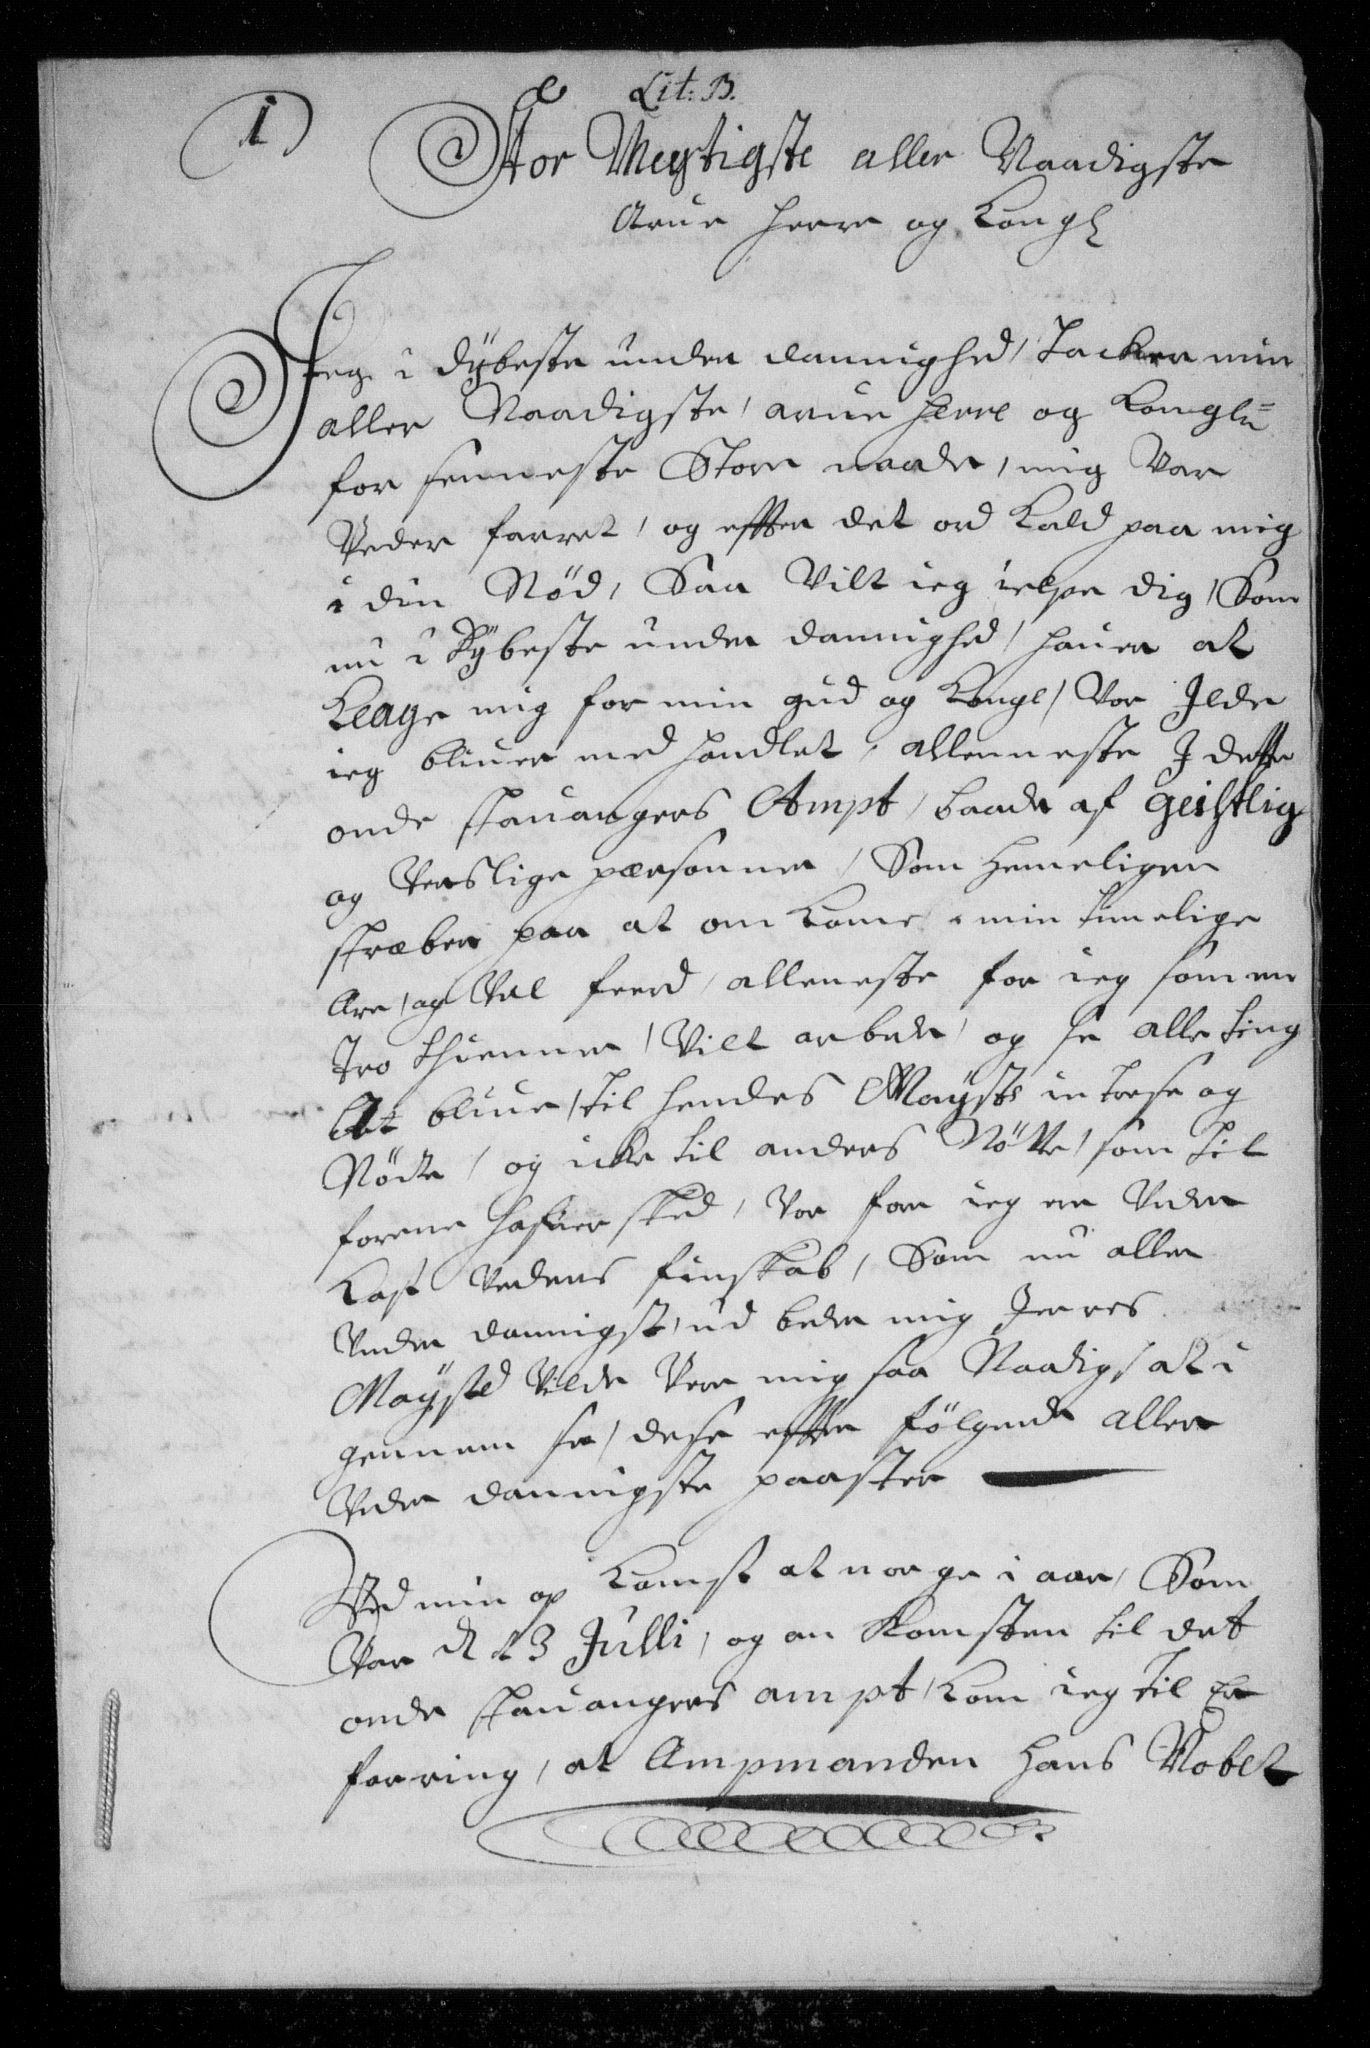 1
Lit: B.
Stor Megtigste aller Naadigste
Arue Herre og Kongl
Jeg i dÿbeste under dannighed / Tacker min
aller Naadigste / arue Herre og Konglig
for senneste Store naade, mig Var
Veder farret / og effter det ord Kald paa mig
i din Nöd, Saa Vilt ieg ielpe dig / Som
nu i Dÿbeste under dannighed / hauer at
Klage mig for min gud og Konge / Vor Jlde
ieg bliuer med handlet, alleneste J dette
onde stauangers Ampt / baade af geistlig
og Verslige pærsonner / Som hemeligen
stræber paa at om Kome min timelige
Ære / og Vel ferd / alleneste for ieg som en
Tro thienner / Vilt arbede / og se alle ting
At bliue / til hendes Maÿsts in trese og
Nötte / og icke til anders Nötte / som Til
forene hafuer sked / Vor for ieg er Under
Kast Verdens finskab, Som nu aller
Under dannigst / ud beder mig Jerres
Maÿstd Vilde Vere mig saa Naadig / at i
gennem se / dese effter fölgende aller
Under dannigste paaster
Ved min op Komst at norge i aar / Som
Var d 13 Julli, og an Komsten til det
onde stauangers ampt / Kom ieg til Er
farring / at Ampmanden Hans Nobel